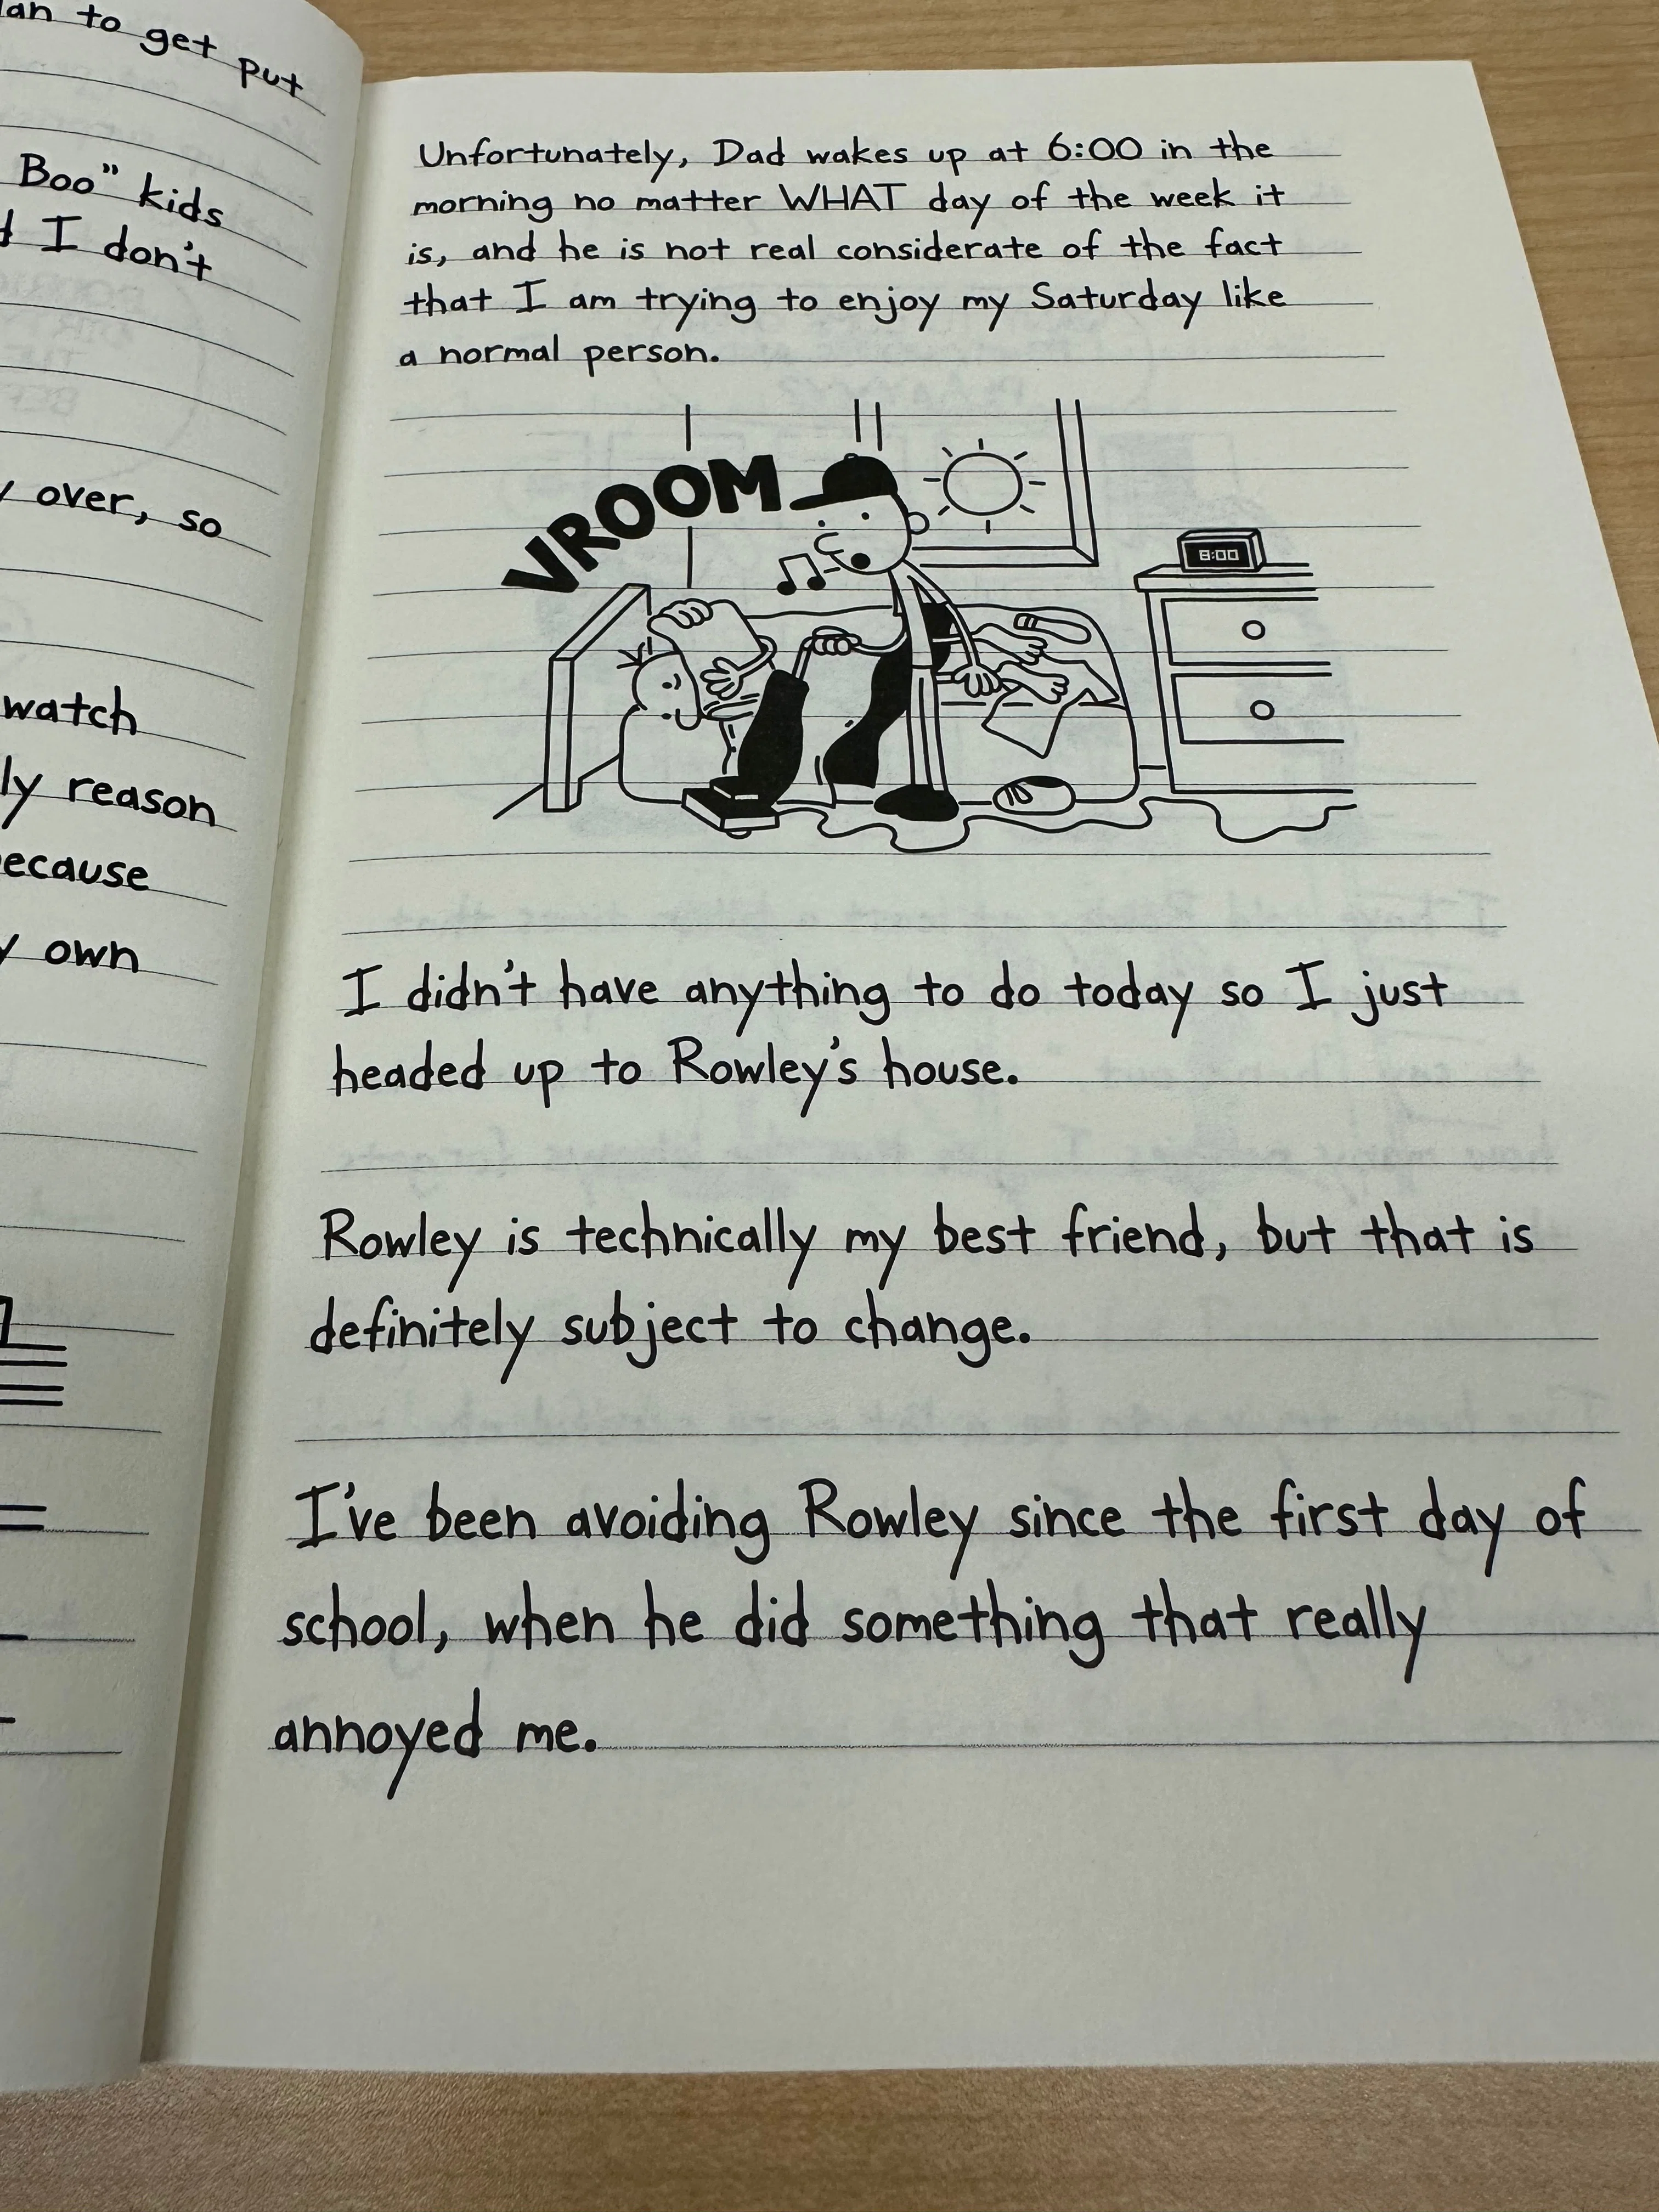 to get put
Boo" kids
I don't
over, so
watch
reason
own
Unfortunately, Dad wakes up at 6:00 in the
morning no matter WHAT day of the week it
is, and he is not real considerate of the fact
that I am trying to enjoy my Saturday like
a normal person.
VROOM
8:00
I didn't have anything to do today so I just
headed up to Rowley's house.
Rowley is technically my best friend, but that is
definitely subject to change.
I've been avoiding Rowley since the first day of
school, when he did something that really
annoyed me.